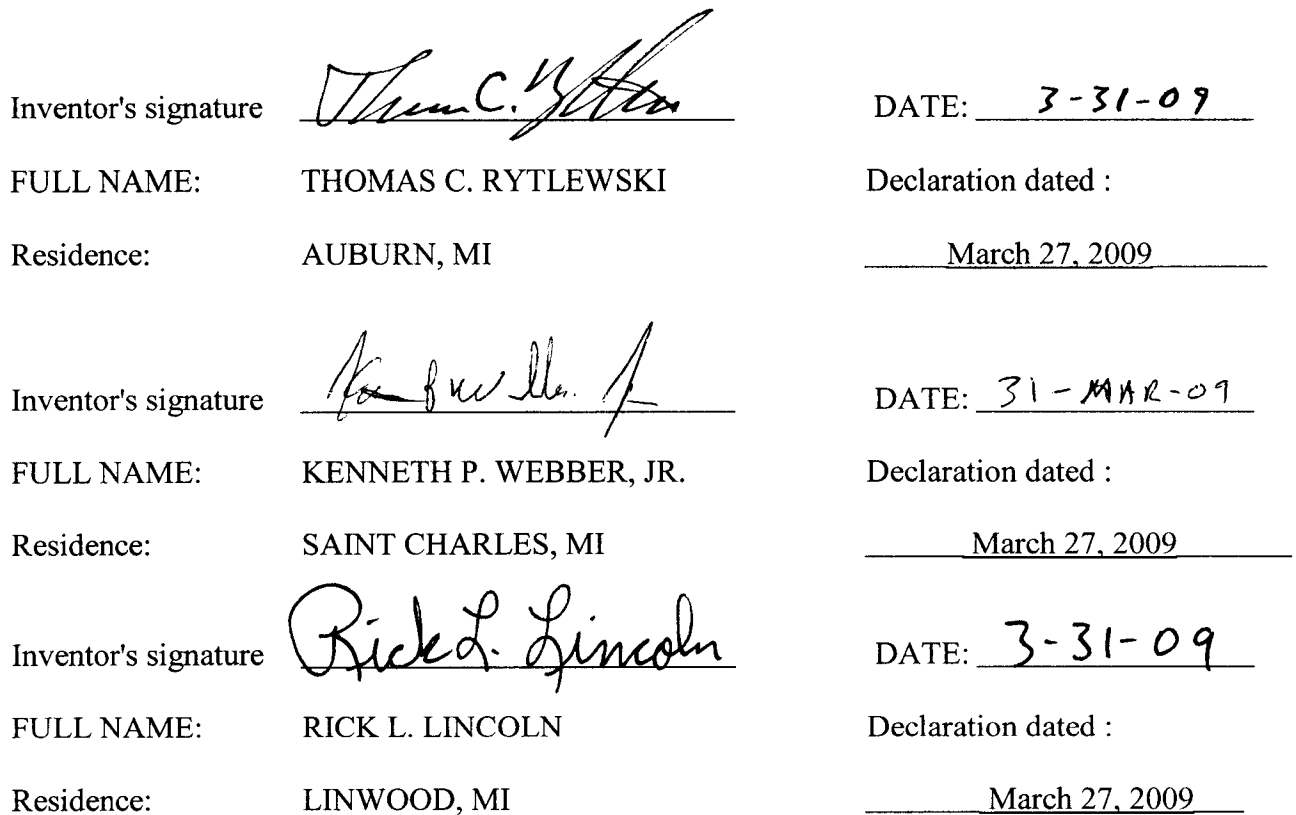 Inventor's signature Thomas C. Rytlewski DATE: 3-31-09
FULL NAME: THOMAS C. RYTLEWSKI Declaration dated :
Residence: AUBURN, MI March 27, 2009
Inventor's signature DATE: 31-MAR-09
FULL NAME: KENNETH P. WEBBER, JR. Declaration dated :
Residence: SAINT CHARLES, MI March 27, 2009
Inventor's signature Rick L. Lincoln DATE: 3-31-09
FULL NAME: RICK L. LINCOLN Declaration dated :
Residence: LINWOOD, MI March 27, 2009